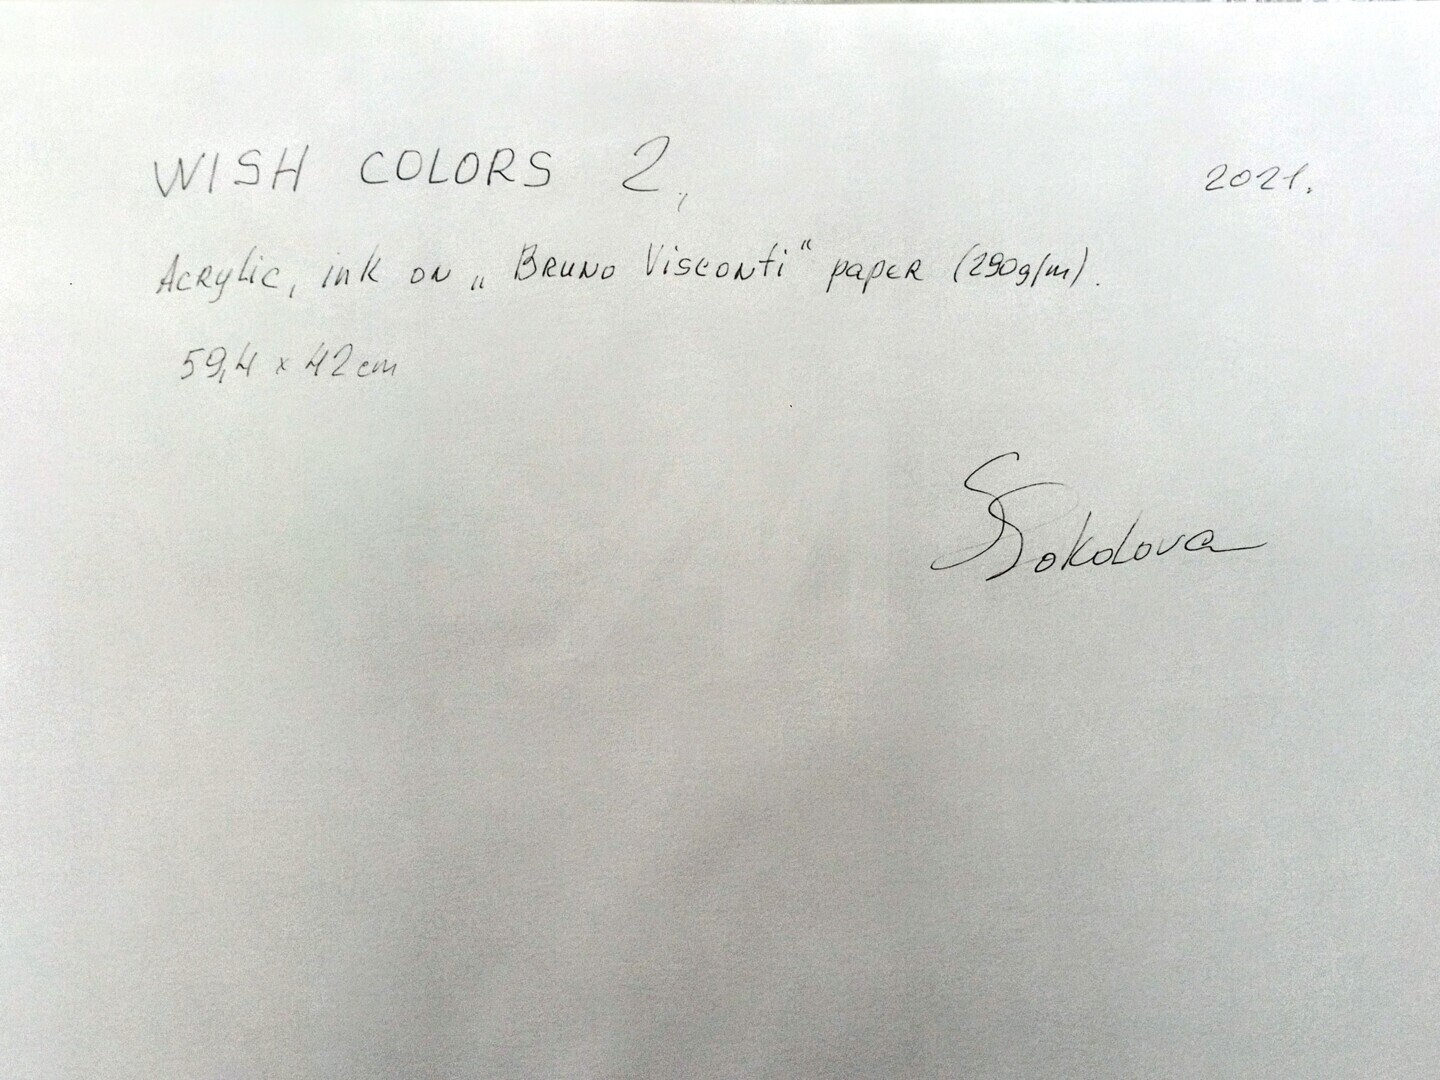 WISH COLORS 2, 2021.
Acrylic, ink on „Bruno Visconti“ paper (290g/m).
59,4 x 42 cm
Sokolova